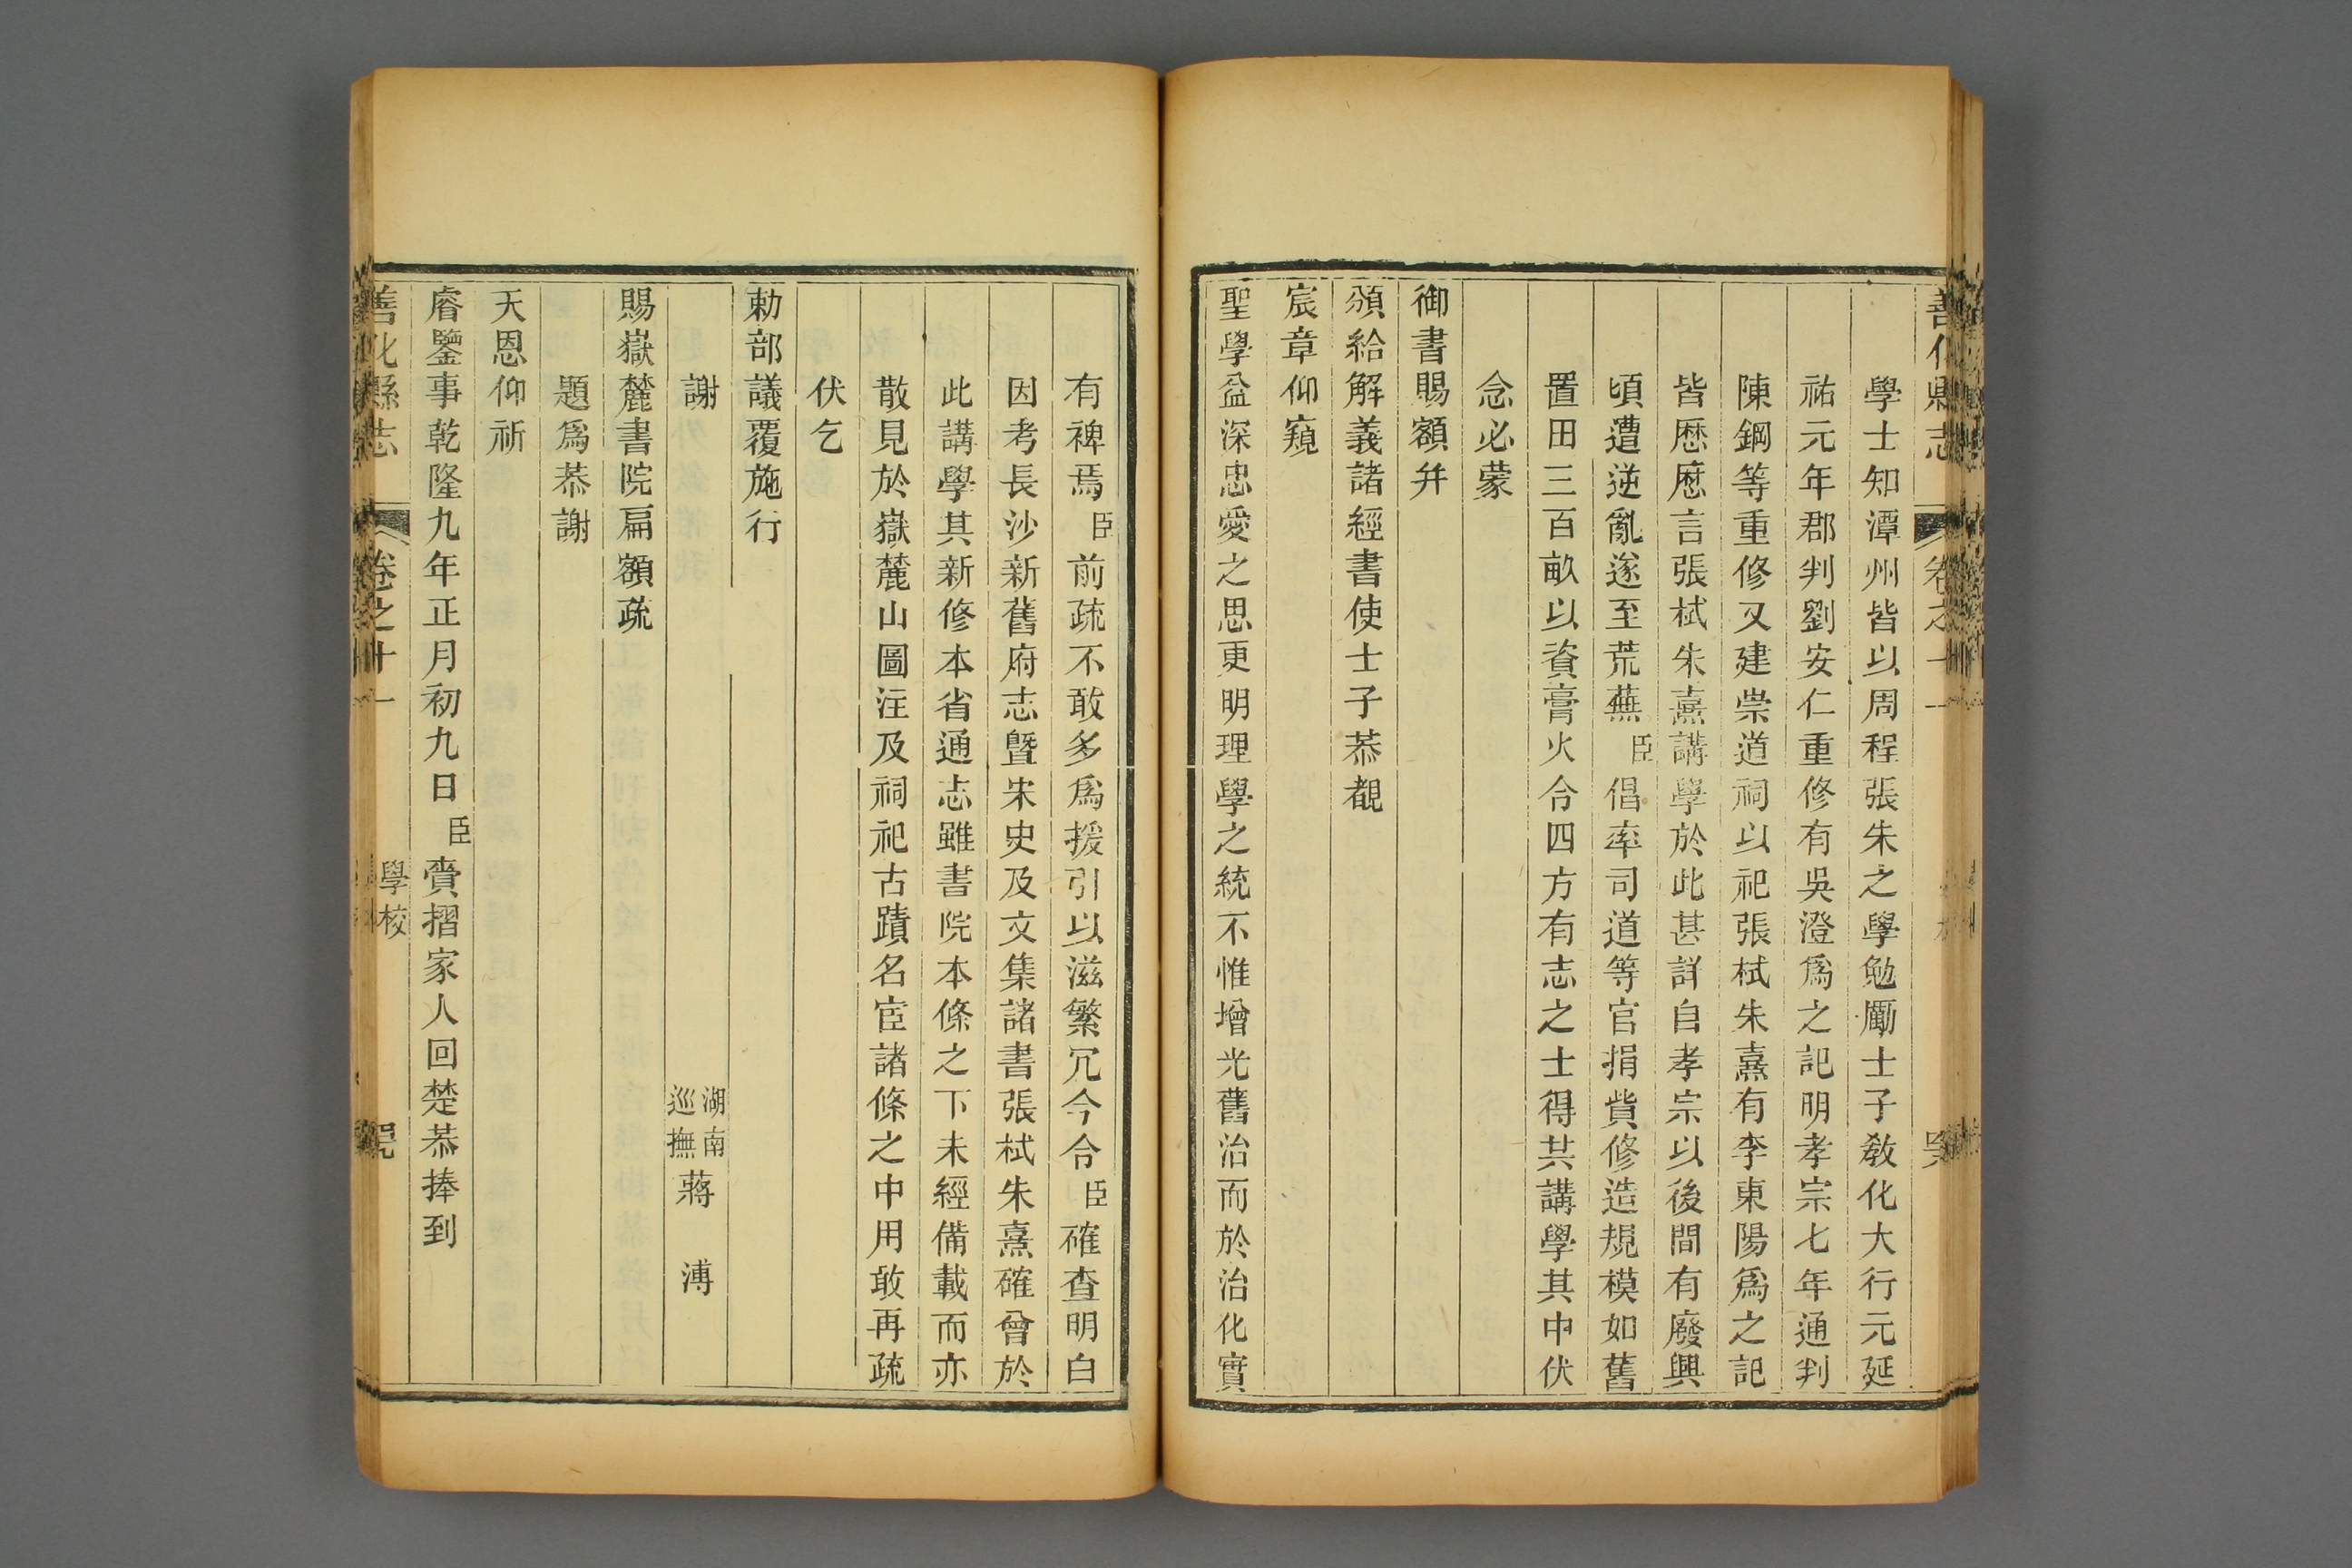 善化縣志 卷之十一
學士知潭州皆以周程張朱之學勉勵士子教化大行元延
祐元年郡判劉安仁重修有吳澄爲之記明孝宗七年通判
陳鋼等重修又建崇道祠以祀張栻朱熹有李東陽爲之記
皆歷歷言張栻朱熹講學於此甚詳自孝宗以後間有廢興
頃遭逆亂遂至荒蕪臣倡率司道等官捐貲修造規模如舊
置田三百畝以資膏火令四方有志之士得共講學其中伏
念必蒙
御書賜額并
頒給解義諸經書使士子恭覩
宸章仰窺
聖學益深忠愛之思更明理學之統不惟增光舊治而於治化實
有裨焉臣前疏不敢多爲援引以滋繁冗今合臣確查明白
因考長沙新舊府志曁宋史及文集諸書張栻朱熹確曾於
此講學其新修本省通志雖書院本條之下未經備載而亦
散見於嶽麓山圖注及祠祀古蹟名宦諸條之中用敢再疏
伏乞
勅部議覆施行
謝 湖南巡撫蔣 溥
賜嶽麓書院扁額疏
題爲恭謝
天恩仰祈
睿鑒事乾隆九年正月初九日臣賫摺家人回楚恭捧到
善化縣志 卷之十一 學校